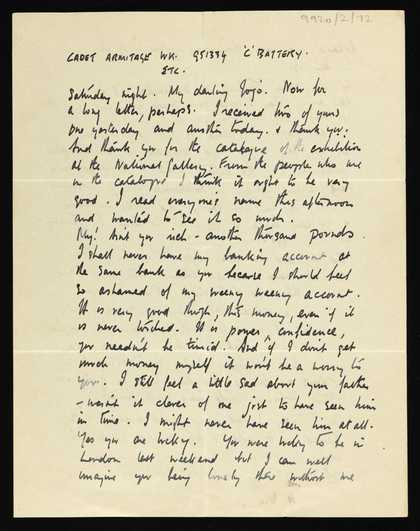 9920/2/72
CADET ARMITAGE WK. 951334 'C' BATTERY.
ETC.
Saturday night. My darling Jojo. Now for
a long letter, perhaps. I received two of yours
one yesterday and another today. & thank you.
And thank you for the catalogue of the exhibition
at the National Gallery. From the people who are
in the catalogue I think it ought to be very
good. I read everyone's name this afternoon
and wanted to see it so much.
My! Aint you rich - another thousand pounds.
I shall never have my banking account at
the same bank as you because I should feel
so ashamed of my weeny weeny account.
It is very good though, this money, even if it
is never touched. It is power, confidence,
you needn't be timid. And if I don't get
much money myself it won't be a worry to
you. I still feel a little sad about your father
- wasn't it clever of me just to have seen him
in time. I might never have seen him at all.
Yes you are lucky. You were lucky to be in
London last weekend but I can well
imagine you being lonely there without me